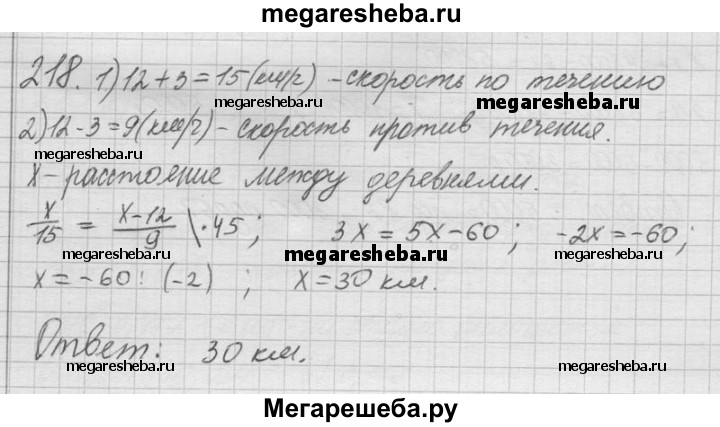 megaresheba.ru
218. 1) 12 + 3 = 15 (км/г) - скорость по течению
megaresheba.ru
2) 12 - 3 = 9 (км/г) - скорость против течения.
megaresheba.ru
megaresheba.ru
X - расстояние между деревнями.
x/15 = x-12/9 \ · 45; 3x = 5x - 60; -2x = -60;
megaresheba.ru
x = -60 : (-2) ; x = 30 км.
Ответ: 30 км.
megaresheba.ru
megaresheba.ru
Мегарешеба.ру